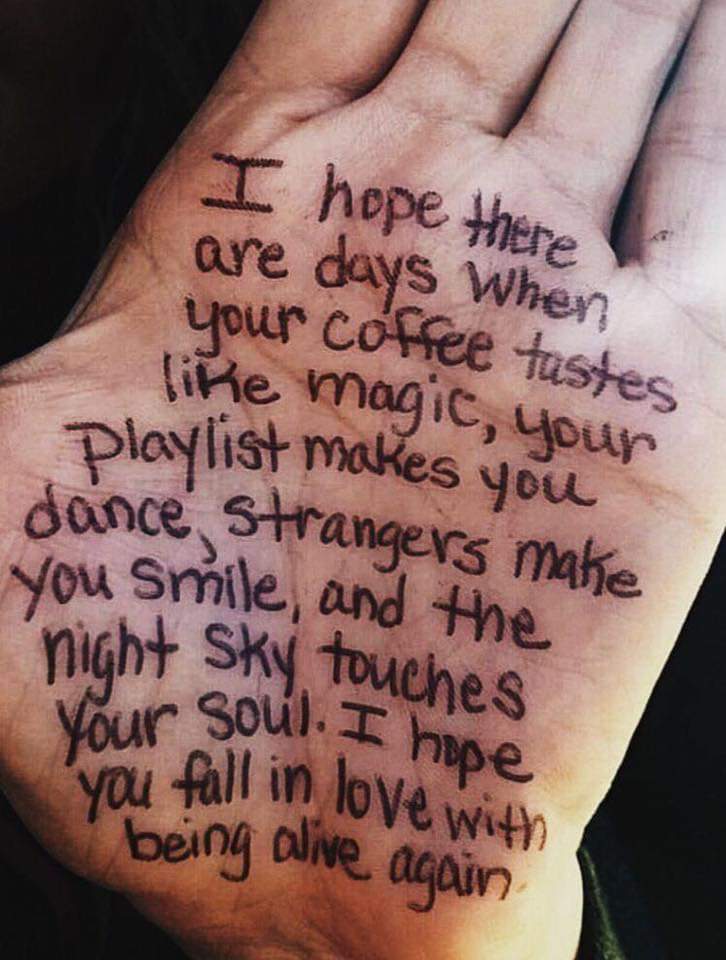 I hope there
are days when
your coffee tastes
like magic, your
playlist makes you
dance, strangers make
you smile, and the
night sky touches
your soul. I hope
you fall in love with
being alive again